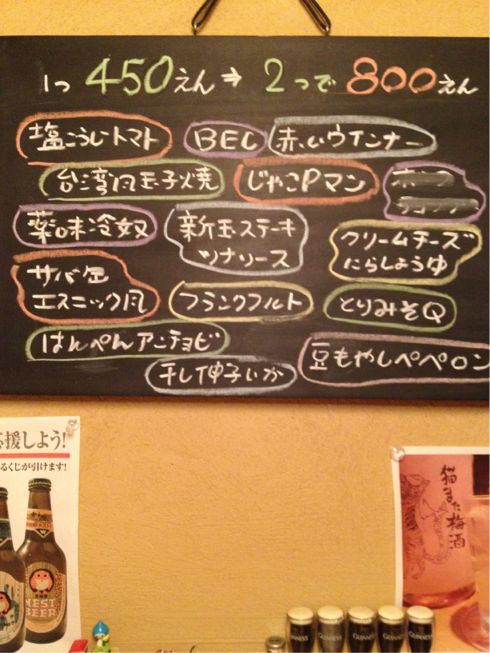 1つ 450えん→ 2つで 800えん
塩こうじトマト
BEC
赤いウインナー
台湾風玉子焼
じゃこPマン
薬味冷奴
新玉ステーキ
ツナソース
クリームチーズ
にらしょうゆ
サバ缶
エスニック風
フランクフルト
とりみそQ
はんぺんアンチョビ
豆もやしペペロン
干し伸子いか
応援しよう!
るくじが引けます!
NEST
BEER
猫また梅酒
GUINNESS
GUINNESS
GUINNESS
GUINNESS
GUINNESS